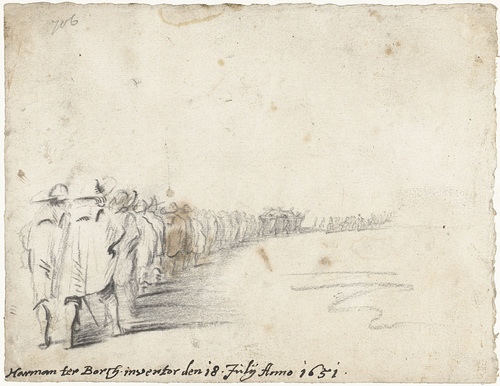 706
Harman ter Borch. inventor den 18. Julij Anno 1651.